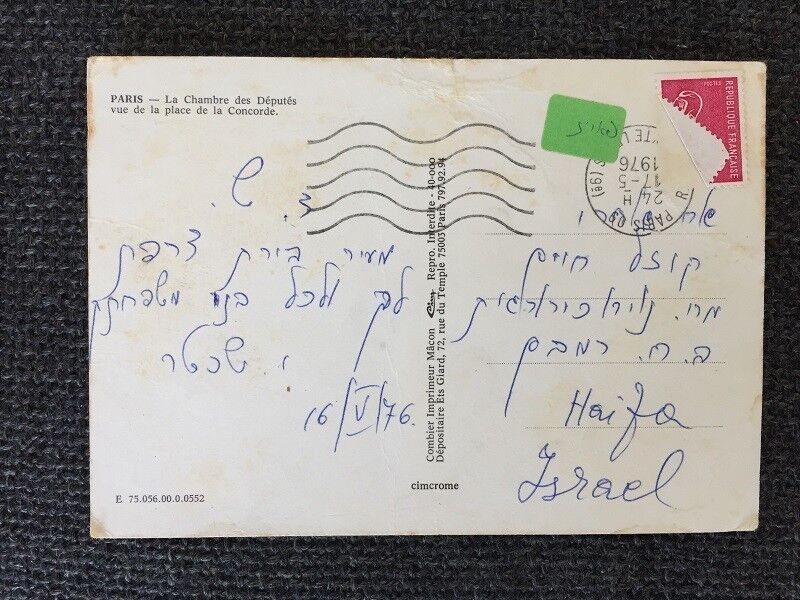 PARIS — La Chambre des Députés
vue de la place de la Concorde.
ד. ש.
מעיר בירת צרפת
לך ולכל בני משפחתך
י. שכטר
16/V/76.
E 75.056.00.0.0552
Combier Imprimeur Mâcon Cim Repro. Interdite - 40-000
Dépositaire Ets Giard, 72, rue du Temple 75003 Paris 797.92.94
cimcrome
פאריז
POSTES
REPUBLIQUE FRANÇAISE
24 H
17-5
1976
PARIS 09
קוזל חיים
מח. נוירוכירורגית
ב. ח. רמבם
Haifa
Israel